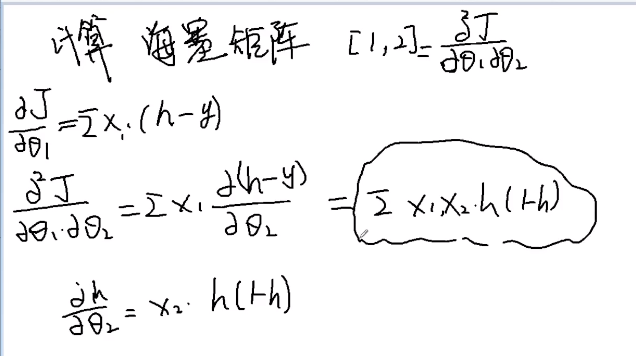 计算 海塞矩阵 [1,2]=∂²J/∂θ₁∂θ₂
∂J/∂θ₁ = Σ x₁·(h-y)
∂²J/∂θ₁·∂θ₂ = Σ x₁ ∂(h-y)/∂θ₂ = Σ x₁x₂·h(1-h)
∂h/∂θ₂ = x₂· h(1-h)